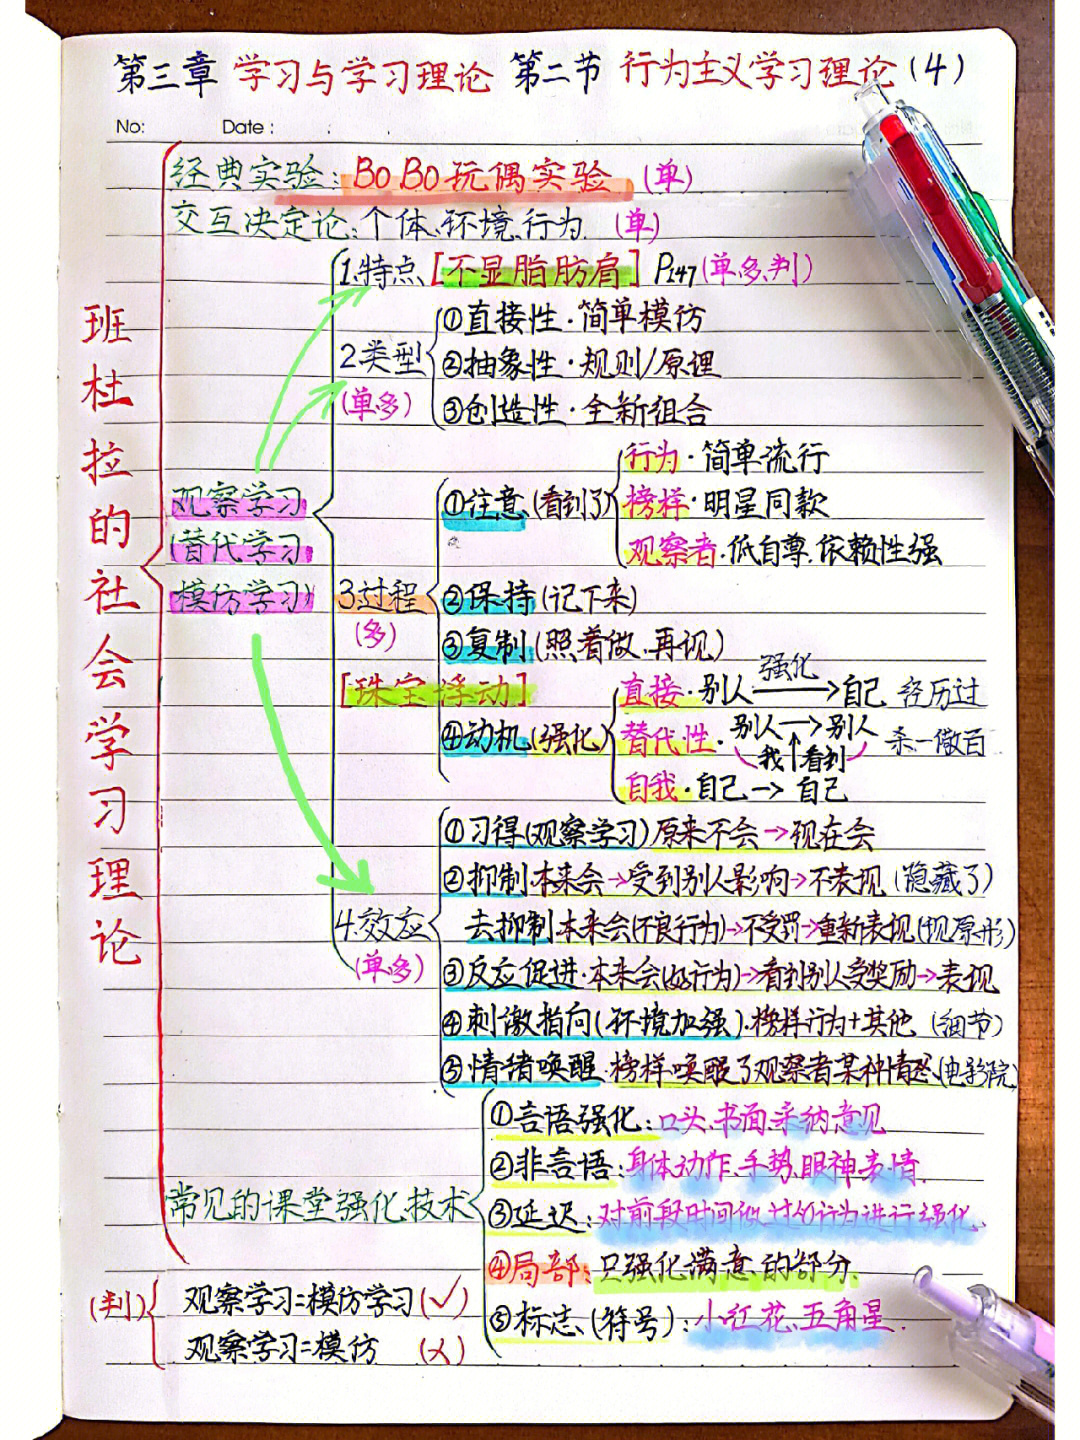 第三章 学习与学习理论 第二节 行为主义学习理论(4)
No: Date:
班杜拉的社会学习理论
经典实验:BOBO玩偶实验 (单)
交互决定论:个体、环境、行为 (单)
观察学习
(替代学习
模仿学习)
1.特点[不显脂肪肩] P147(单.多.判)
2类型
(单.多)
①直接性·简单模仿
②抽象性·规则/原理
③创造性·全新组合
3过程
(多)
[珠宝浮动]
①注意(看到了)
行为·简单流行
榜样·明星同款
观察者·低自尊、依赖性强
②保持(记下来)
③复制(照着做、再现)
④动机(强化)
直接·别人 强化→自己 经历过
替代性·别人→别人 杀一儆百
我↑看到
自我·自己→自己
4.效应
(单.多)
①习得(观察学习)原来不会→现在会
②抑制·本来会→受到别人影响→不表现(隐藏了)
去抑制·本来会(不良行为)→不受罚→重新表现(现原形)
③反应促进·本来会(好行为)→看到别人受奖励→表现
④刺激指向(环境加强)·榜样行为+其他 (细节)
⑤情绪唤醒·榜样唤醒了观察者某种情感(电影院)
常见的课堂强化技术
①言语强化:口头、书面、采纳意见
②非言语:身体动作、手势、眼神表情.
③延迟:对前段时间做过的行为进行强化.
④局部:只强化满意的部分.
⑤标志(符号):小红花、五角星.
(判)
观察学习=模仿学习(√)
观察学习=模仿 (×)